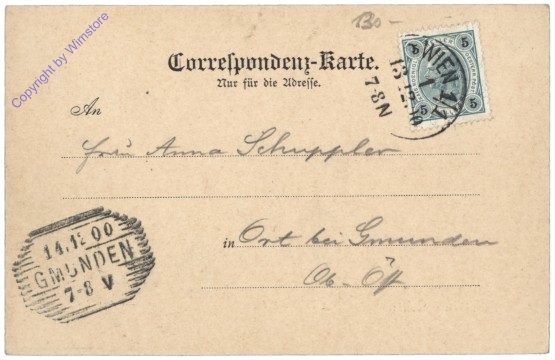 130-
Copyright by Wimstore
Correspondenz-Karte.
Nur für die Adresse.
5 5
WIEN 1/1
5 5
7-8N
An
Frau Anna Schuppler
in Ort bei Gmunden
Ob-Öst
14.12 00
GMUNDEN
7-8 V